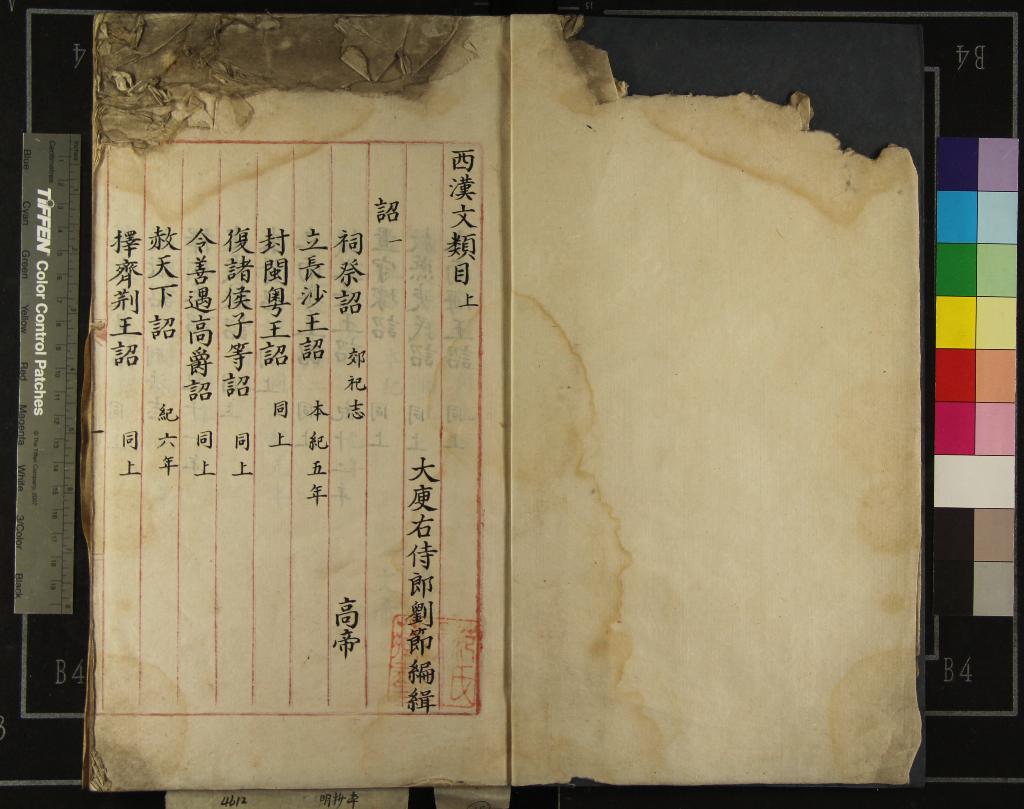 西漢文類目上
大庾右侍郎劉節編緝
詔一
祠祭詔 郊祀志 高帝
立長沙王詔 本紀五年
封閩粵王詔 同上
復諸侯子等詔 同上
令善遇高爵詔 同上
赦天下詔 紀六年
擇齊荆王詔 同上
4612 明抄本
B4
B4
B4
TIFFEN Color Control Patches
Blue Cyan Green Yellow Red Magenta White 3/Color Black
Centimetres Inches